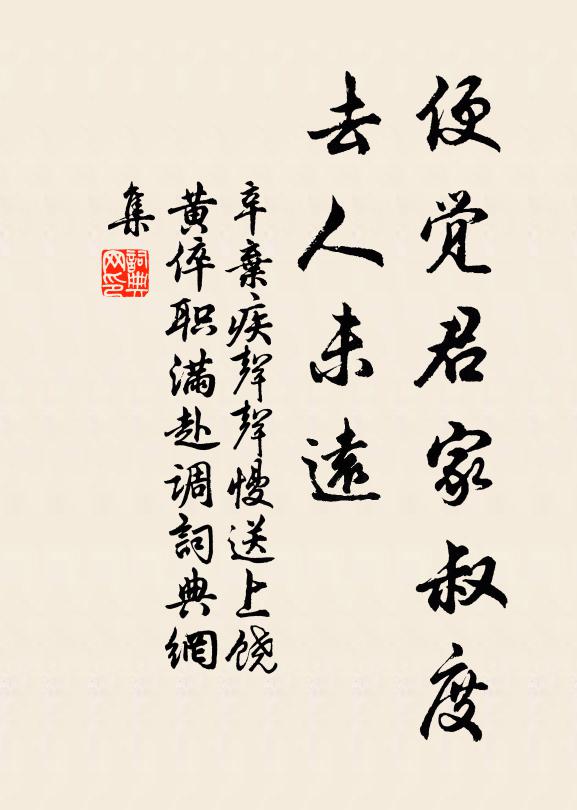 便觉君家叔度
去人未遠
辛棄疾聲聲慢送上饶
黄倅职满赴调詞典網
集
詞典网印